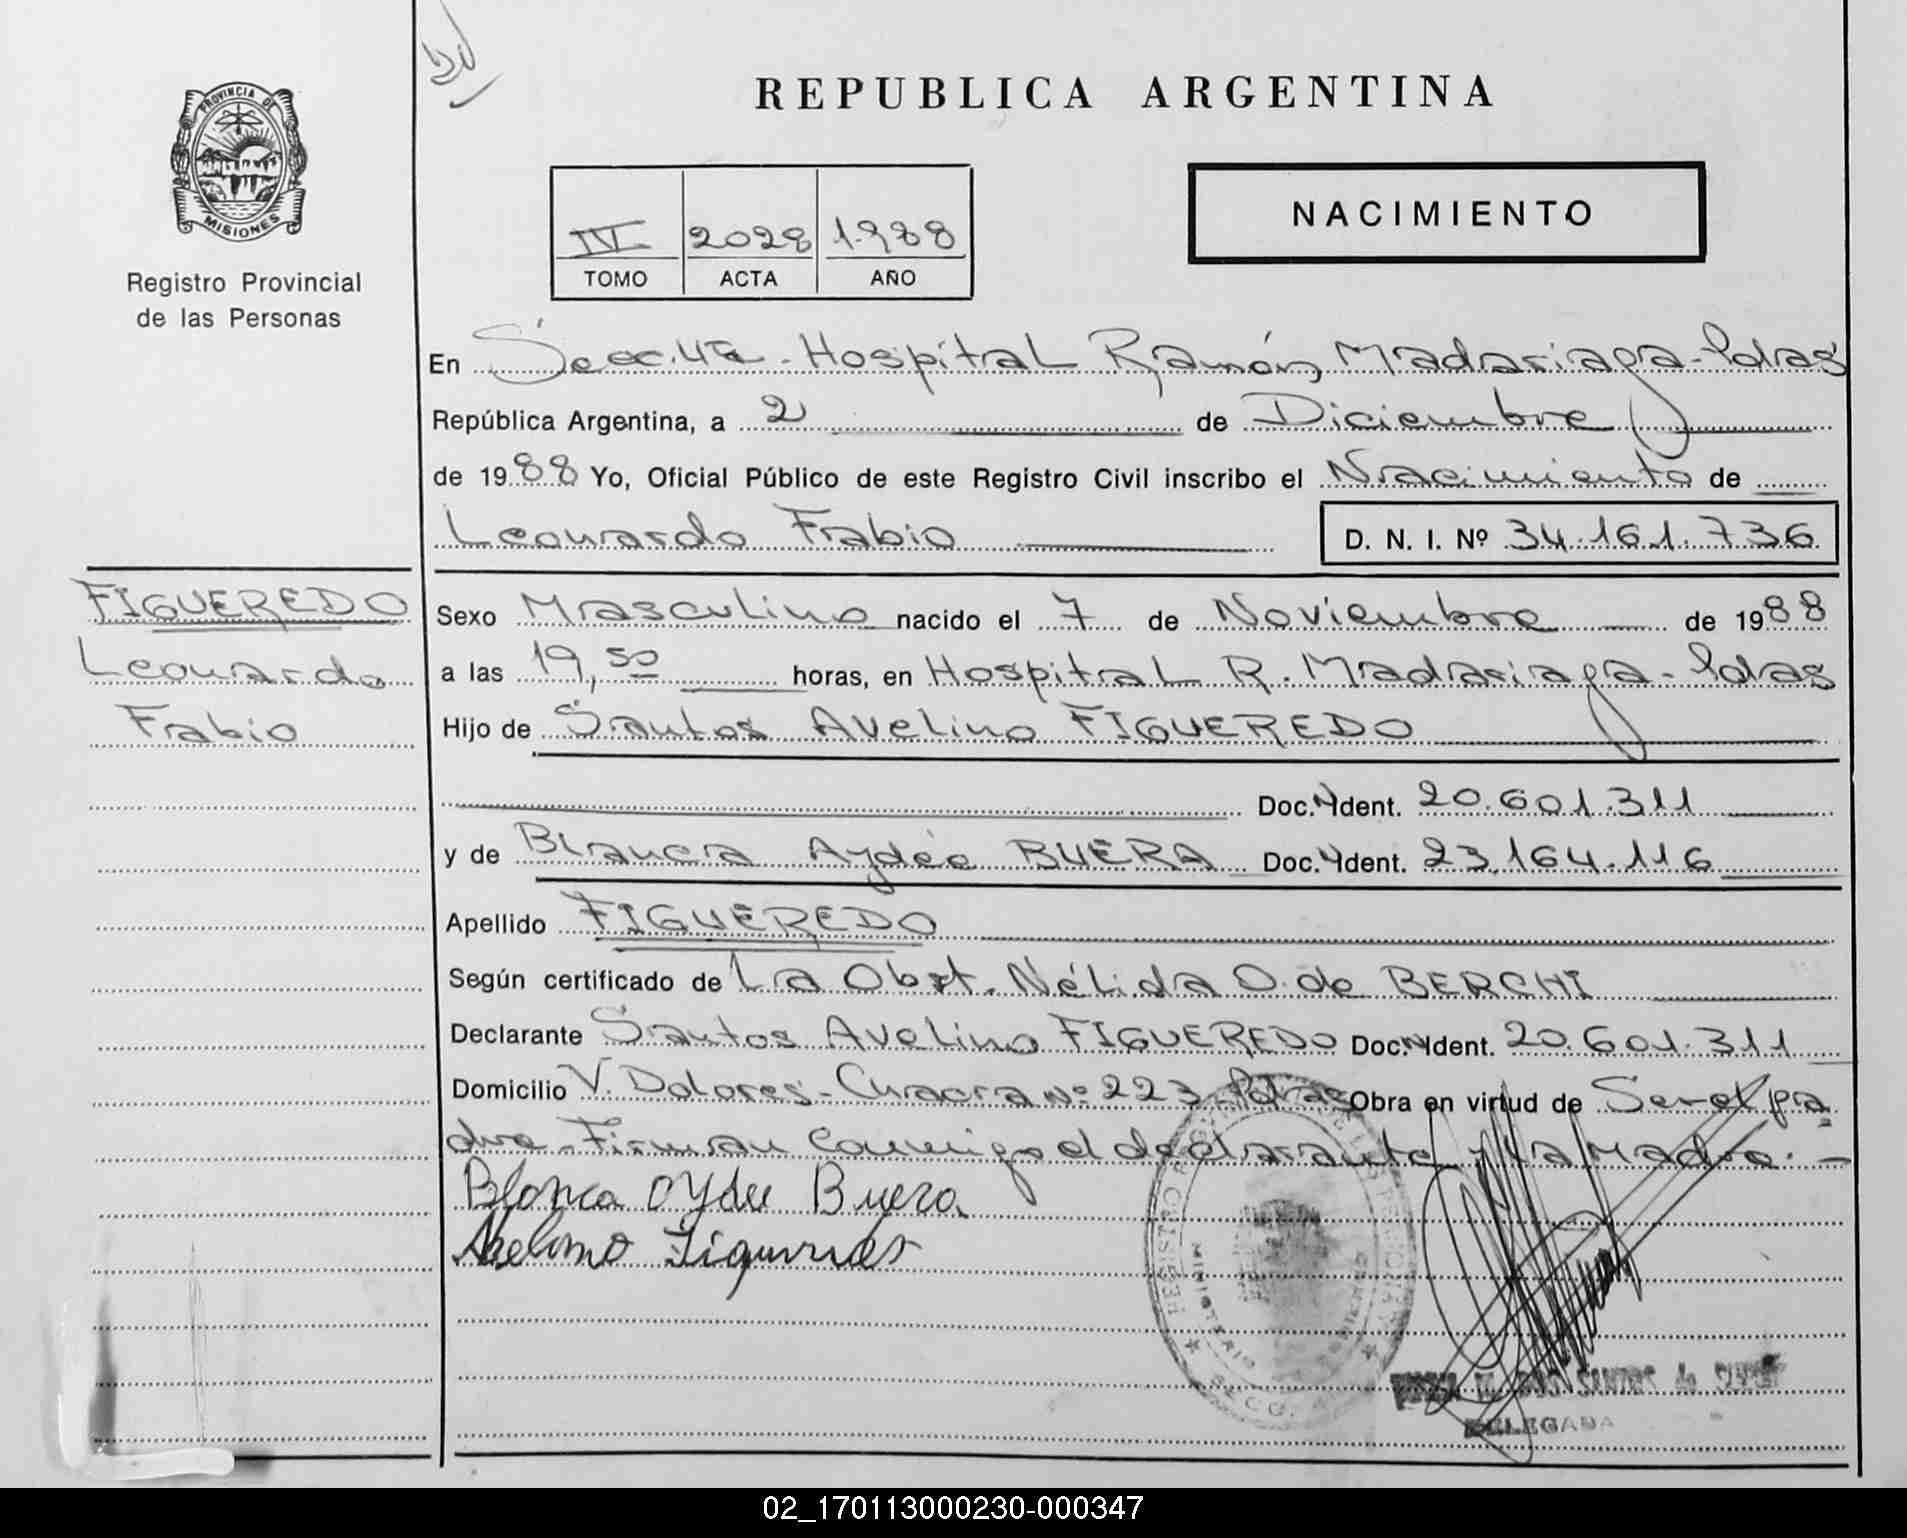 PROVINCIA DE
MISIONES
Registro Provincial
de las Personas
REPUBLICA ARGENTINA
IV 2028 1.988
TOMO ACTA AÑO
NACIMIENTO
En Secc. 4ta - Hospital Ramón Madariaga - Pdas
República Argentina, a 2 de Diciembre
de 1988 Yo, Oficial Público de este Registro Civil inscribo el Nacimiento de
Leonardo Fabio
D. N. I. Nº 34.161.736
FIGUEREDO
Leonardo
Fabio
Sexo Masculino nacido el 7 de Noviembre de 1988
a las 19,50 horas, en Hospital R. Madariaga - Pdas
Hijo de Santos Avelino FIGUEREDO
Doc. Ident. 20.601.311
y de Blanca Aydée BUERA Doc. Ident. 23.164.116
Apellido FIGUEREDO
Según certificado de La Obst. Nélida O. de BERCHI
Declarante Santos Avelino FIGUEREDO Doc. Ident. 20.601.311
Domicilio V. Dolores - Chacra Nº 223 Pdas Obra en virtud de Ser el pa
dre - Firman conmigo el declarante y la Madre. -
Blanca Aydee Buera
Avelino Figueredo
DELEGADA
02_170113000230-000347